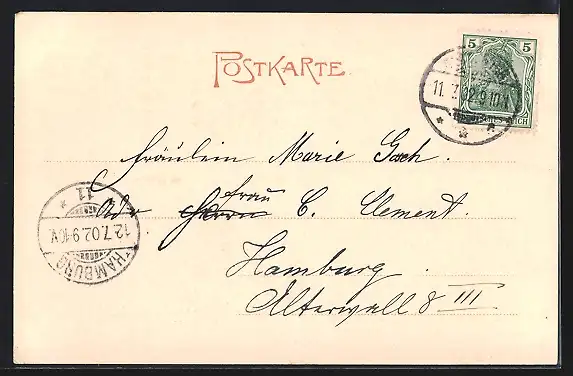 POSTKARTE
5 5
11.7.02.9-10V.
REICH
Fräulein Marie Goch.
Adr. Herrn Frau C. Clement.
Hamburg.
Alterwall 8 III
11
12.7.02.9-10V.
HAMBURG